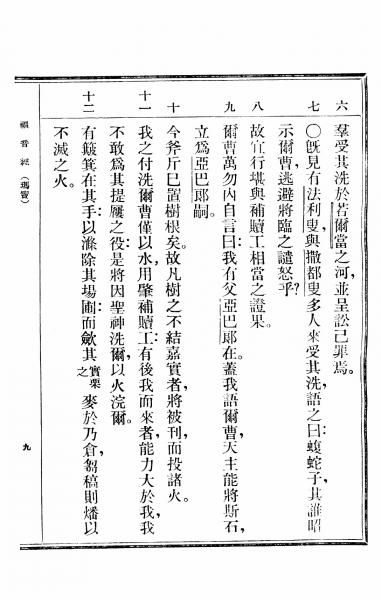 六　羣受其洗於若爾當之河，並呈訟己罪焉。
七　○旣見有法利叟，與撒都叟多人來受其洗，語之曰：蝮蛇子，其誰昭
示爾曹，逃避將臨之譴怒乎？
八　故宜行堪與補贖工相當之證果。
九　爾曹萬勿內自言曰：我有父亞巴郞在。蓋我語爾曹，天主能將斯石，
立爲亞巴郞嗣。
十　今斧斤已置樹根矣。故凡樹之不結嘉實者，將被刊而投諸火。
十一　我之付洗爾曹僅以水，用肇補贖工；有後我而來者，能力大於我，我
不敢爲其提屨之役；是將因聖神洗爾，以火浣爾。
十二　有簸箕在其手：以滌除其場圃；而斂其實栗之麥於乃倉，芻稿則燔以
不滅之火。
福音經（瑪竇）
九